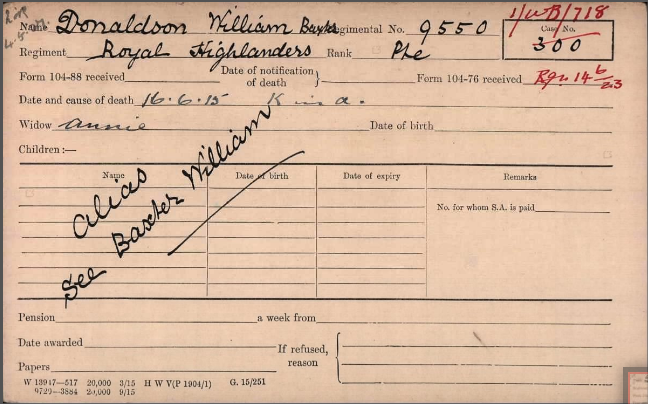 1/WB/718
Name Donaldson William Baxter Regimental No. 9550 Case No.
300
Regiment Royal Highlanders Rank Pte
Form 104-88 received Date of notification of death } Form 104-76 received Rgn. 14 6/23
Date and cause of death 16.6.15 K in a.
Widow Annie Date of birth
Children :—
Name Date of birth Date of expiry Remarks
No. for whom S.A. is paid
alias
See Baxter William
Pension a week from
Date awarded If refused, reason {
Papers
W 13947—517 20,000 3/15 H W V(P 1904/1) G. 15/251
9729—3884 20,000 9/15